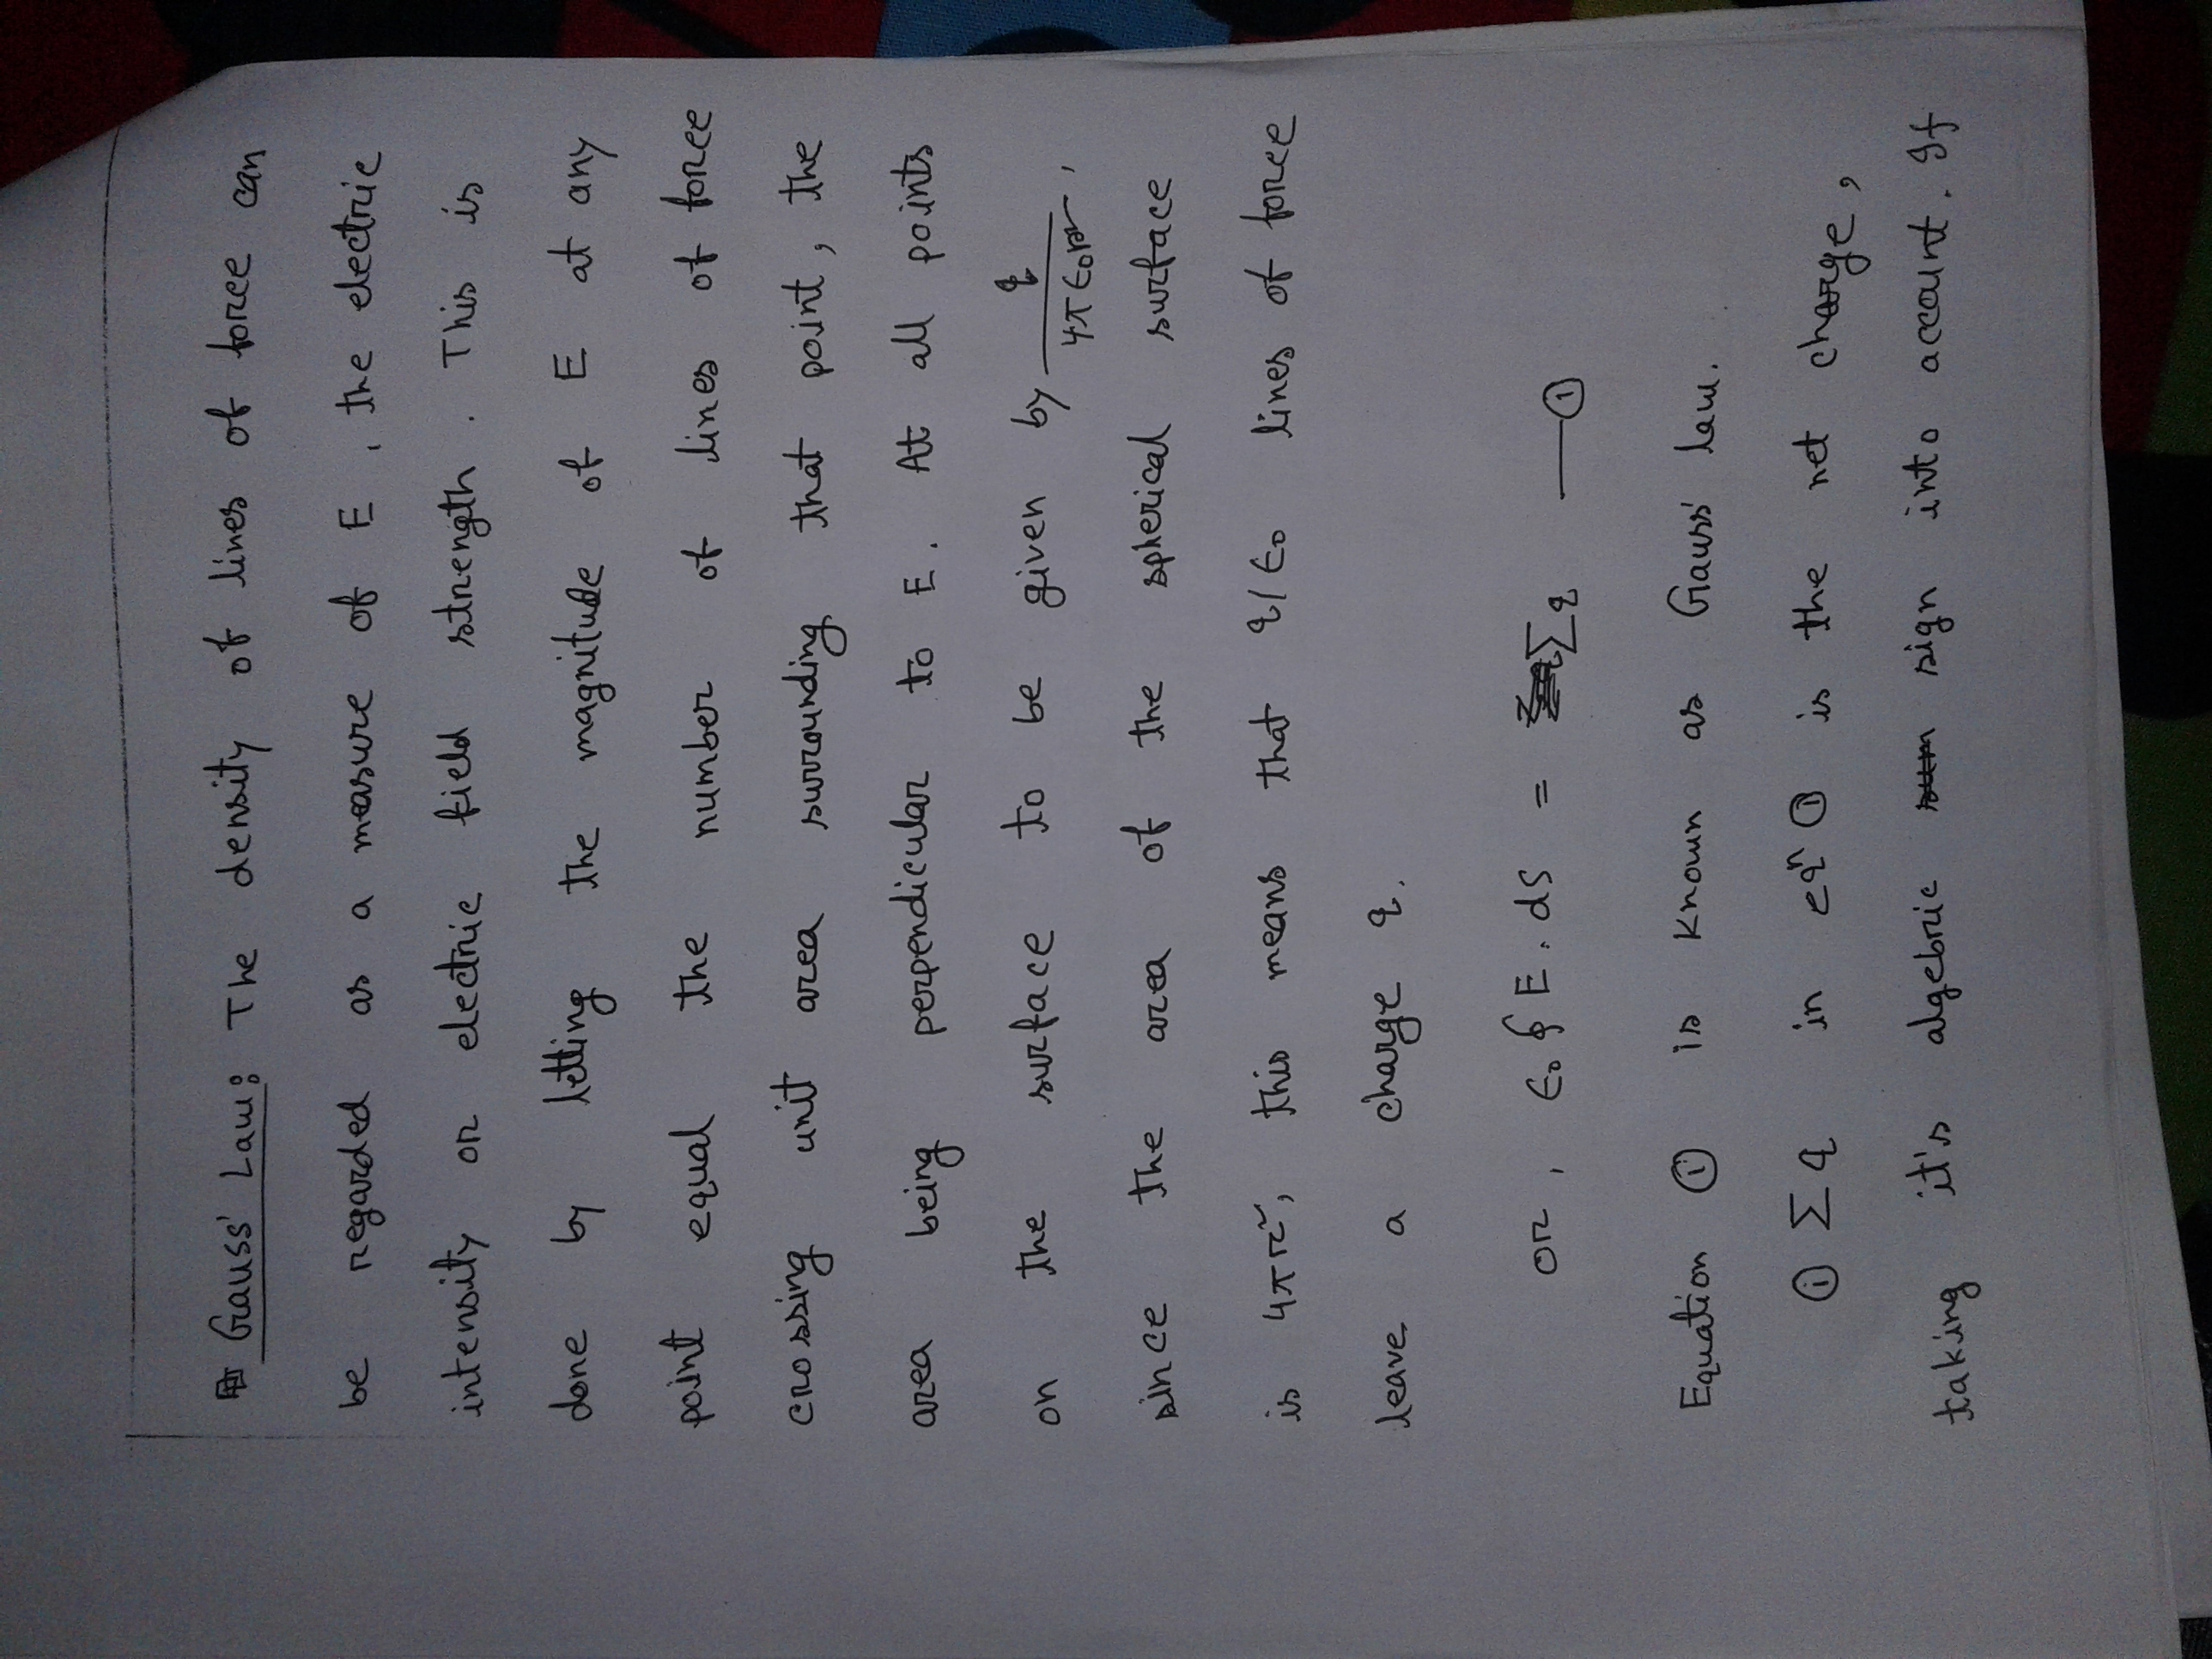 Gauss' Law: The density of lines of force can
be regarded as a measure of E, the electric
intensity or electric field strength. This is
done by letting the magnitude of E at any
point equal the number of lines of force
crossing unit area surrounding that point, the
area being perpendicular to E. At all points
on the surface to be given by q/4πϵ₀r²,
since the area of the spherical surface
is 4πr², this means that q/ϵ₀ lines of force
leave a charge q.
or, ϵ₀ ∮ E. dS = Σq —①
Equation ① is known as Gauss' law.
ⓘ Σq in eqⁿ ① is the net charge,
taking it's algebric sign into account. If